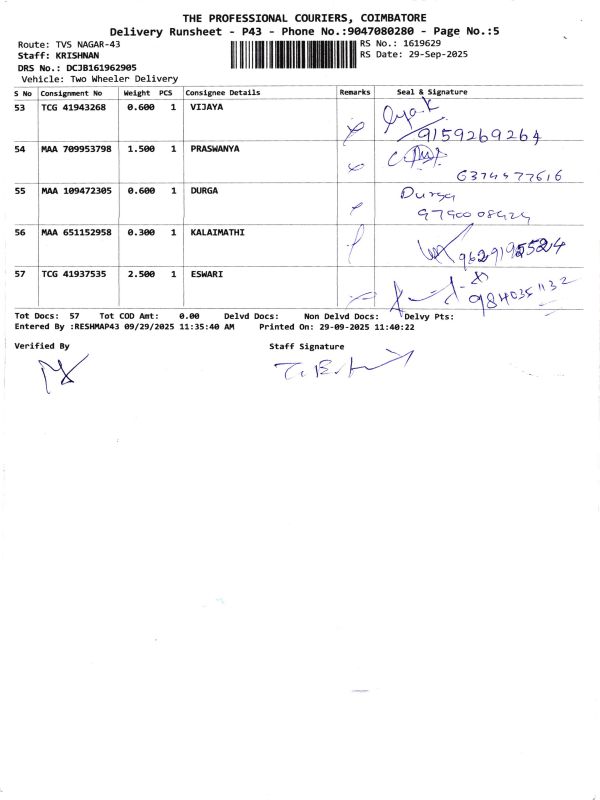 THE PROFESSIONAL COURIERS, COIMBATORE
Delivery Runsheet - P43 - Phone No.:9047080280 - Page No.:5
Route: TVS NAGAR-43 RS No.: 1619629
Staff: KRISHNAN RS Date: 29-Sep-2025
DRS No.: DCJB161962905
Vehicle: Two Wheeler Delivery
S No Consignment No Weight PCS Consignee Details Remarks Seal & Signature
53 TCG 41943268 0.600 1 VIJAYA
9159269264
54 MAA 709953798 1.500 1 PRASWANYA
6374577616
55 MAA 109472305 0.600 1 DURGA Durga
56 MAA 651152958 0.300 1 KALAIMATHI
57 TCG 41937535 2.500 1 ESWARI
Tot Docs: 57 Tot COD Amt: 0.00 Delvd Docs: Non Delvd Docs: Delvy Pts:
Entered By :RESHMAP43 09/29/2025 11:35:40 AM Printed On: 29-09-2025 11:40:22
Verified By Staff Signature